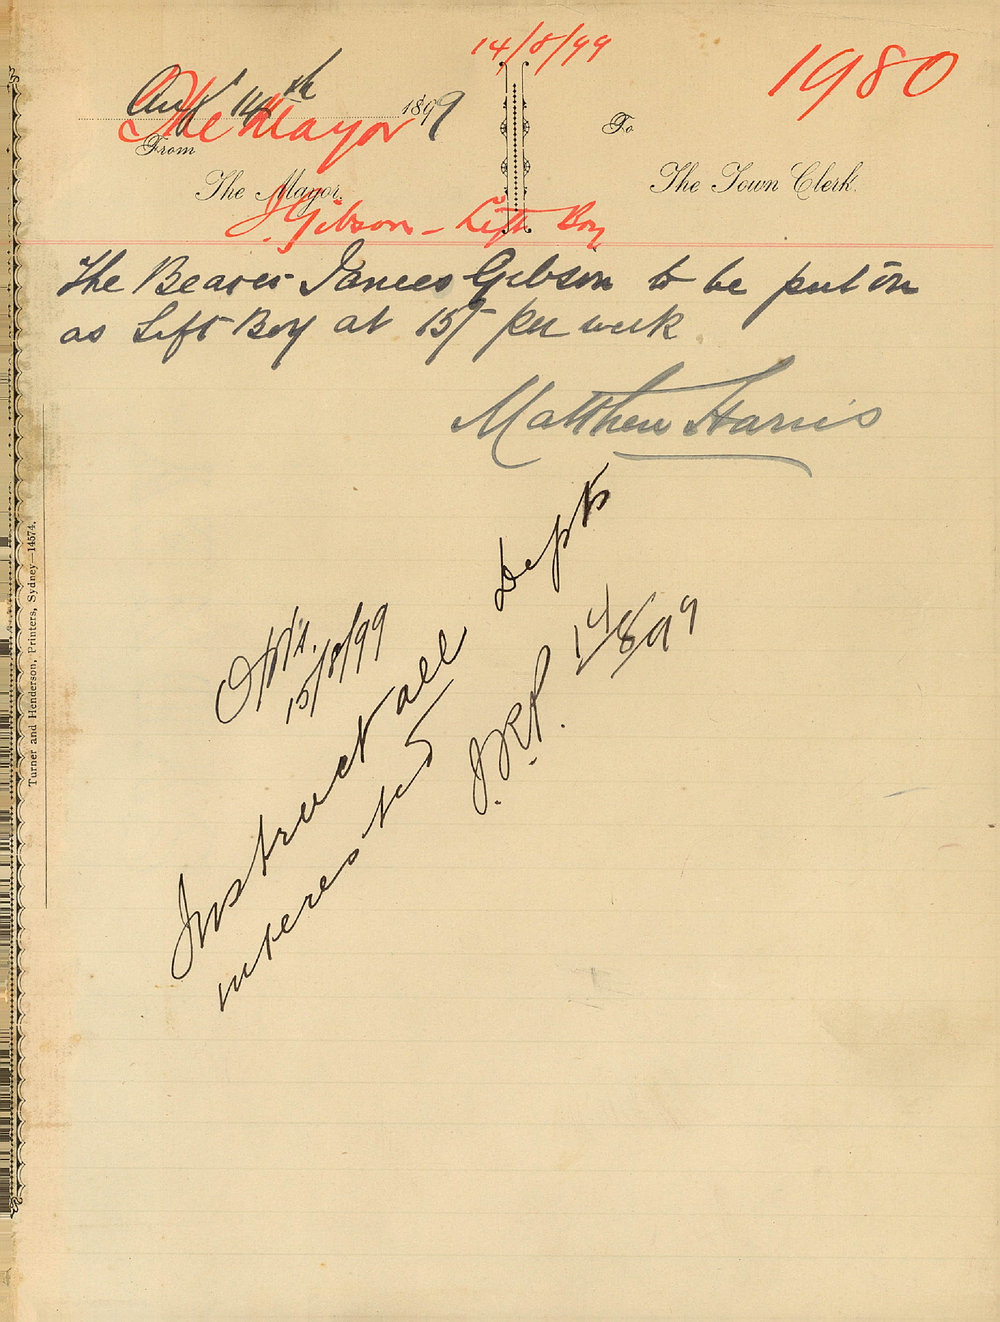 14/8/99
1980
Aug 14th 1899
The Mayor
From
To
The Mayor.
The Town Clerk.
J. Gibson - Lift Boy
The Bearer James Gibson to be put on
as Lift Boy at 15/- per week
Matthew Harris
15/8/99
Instruct all Depts
interested
J.R.P. 14/8/99
Turner and Henderson, Printers, Sydney—14574.